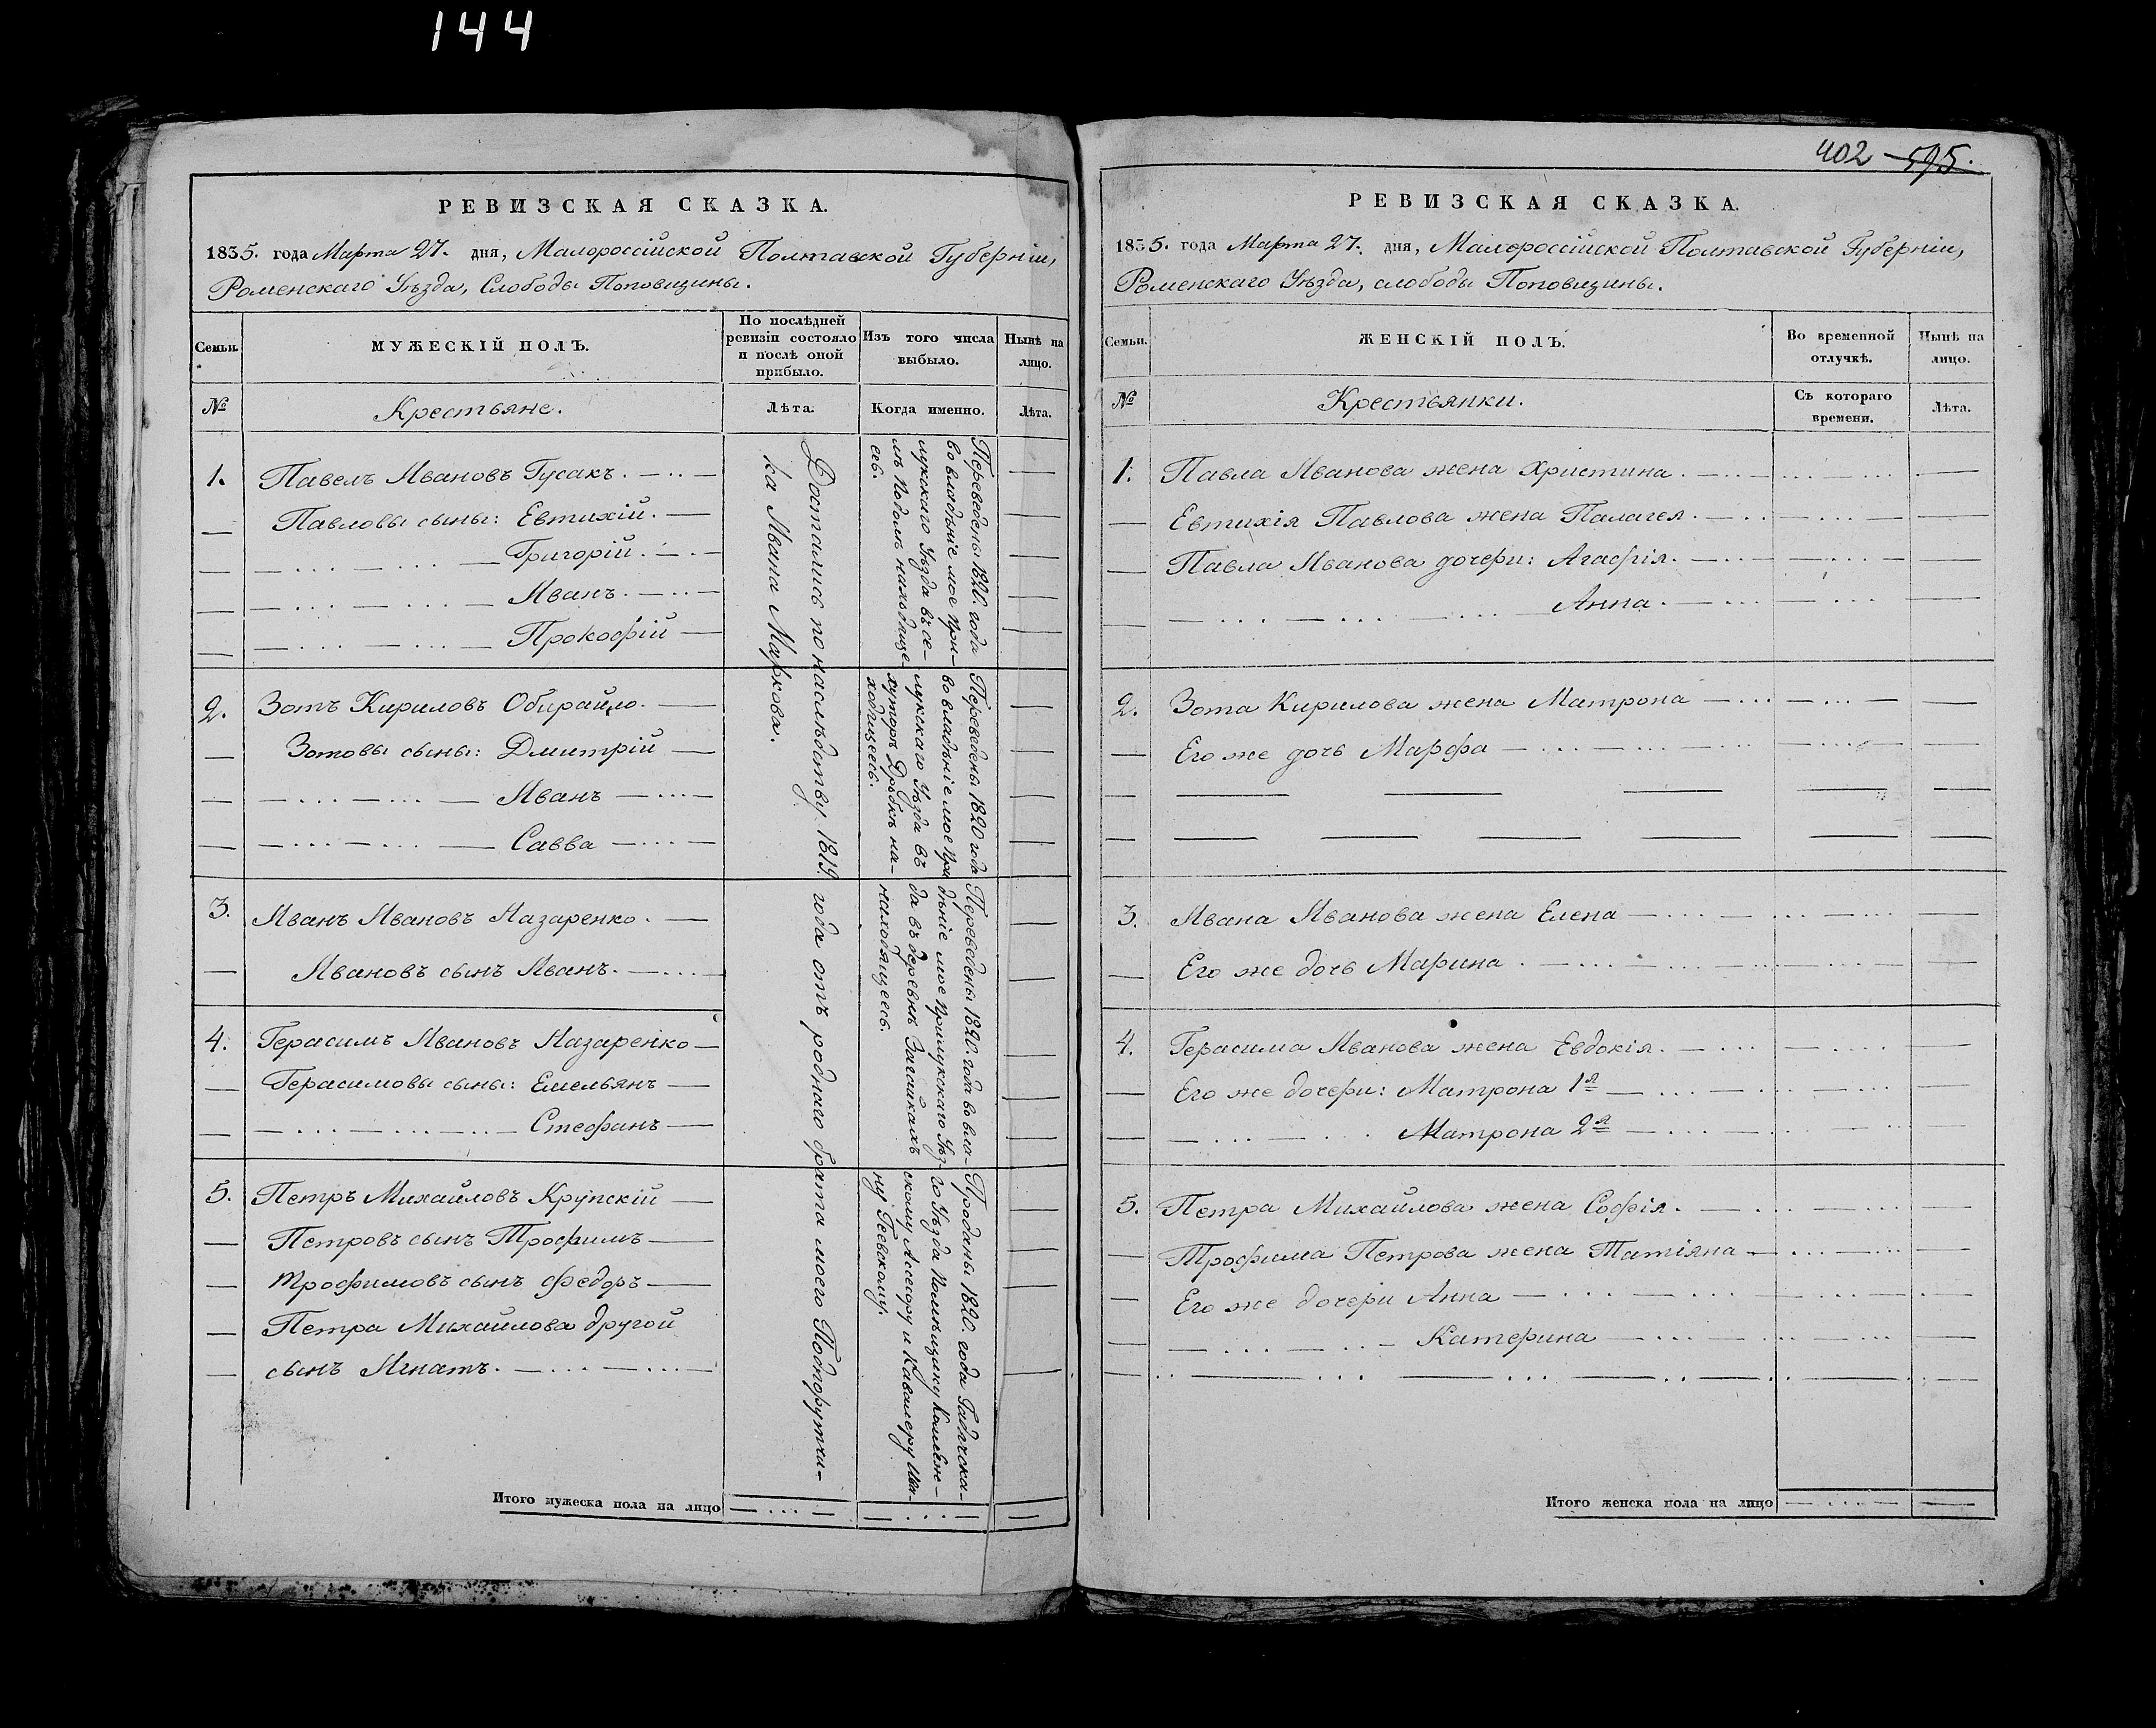 144
РЕВИЗСКАЯ СКАЗКА.
1835. года Марта 27. дня, Малороссійской Полтавской Губерніи,
Роменскаго Уѣзда, Слободы Поповщины.
Семьи.
МУЖЕСКІЙ ПОЛЪ.
По послѣдней
ревизіи состояло
и послѣ оной
прибыло.
Изъ того числа
выбыло.
Нынѣ на
лицо.
№
Крестьяне.
Лѣта.
Когда именно.
Лѣта.
1. Павелъ Ивановъ Гусакъ.
Павловы сыны: Евтихій.
Григорій.
Иванъ.
Прокофій
2. Зотъ Кириловъ Обирайло.
Зотовы сыны: Дмитрій
Иванъ
Савва
3. Иванъ Ивановъ Назаренко.
Ивановъ сынъ Иванъ.
4. Герасимъ Ивановъ Назаренко
Герасимовы сыны: Емельянъ
Стефанъ
5. Петръ Михайловъ Крупскій
Петровъ сынъ Трофимъ
Трофимовъ сынъ Федоръ
Петра Михайлова другой
сынъ Игнатъ.
Достались по наслѣдству 1819. года отъ роднаго брата моего Подпорутчи-
ка Ивана Маркова.
Переведены 1820. года
во владѣніе мое При-
лукскаго Уѣзда въ се-
лѣ Подолѣ находяще
есь.
Переведены 1820 года
во владѣніе мое При
лукскаго Уѣзда въ
хуторѣ на-
ходящеесь.
Переведены 1820. года во вла-
дѣніе мое Прилукскаго Уѣз-
да въ деревнѣ Загайкахъ
находящеесь.
Проданы 1820. года Гадячска-
го Уѣзда Помѣщику Коллеж-
скому Асесору и Кавалеру Ива-
ну Гевскому.
Итого мужеска пола на лицо
402 595.
РЕВИЗСКАЯ СКАЗКА.
1835. года Марта 27. дня, Малороссійской Полтавской Губерніи,
Роменскаго Уѣзда, слободы Поповщины.
Семьи.
ЖЕНСКІЙ ПОЛЪ.
Во временной
отлучкѣ.
Нынѣ на
лицо.
№
Крестьянки.
Съ котораго
времени.
Лѣта.
1. Павла Иванова жена Христина.
Евтихія Павлова жена Палагея.
Павла Иванова дочери: Агафія.
Анна.
2. Зота Кирилова жена Матрона
Его же дочь Марфа
3. Ивана Иванова жена Елена
Его же дочь Марина.
4. Герасима Иванова жена Евдокія.
Его же дочери: Матрона 1я
Матрона 2я
5. Петра Михайлова жена Софія.
Трофима Петрова жена Татіяна
Его же дочери Анна
Катерина
Итого женска пола на лицо